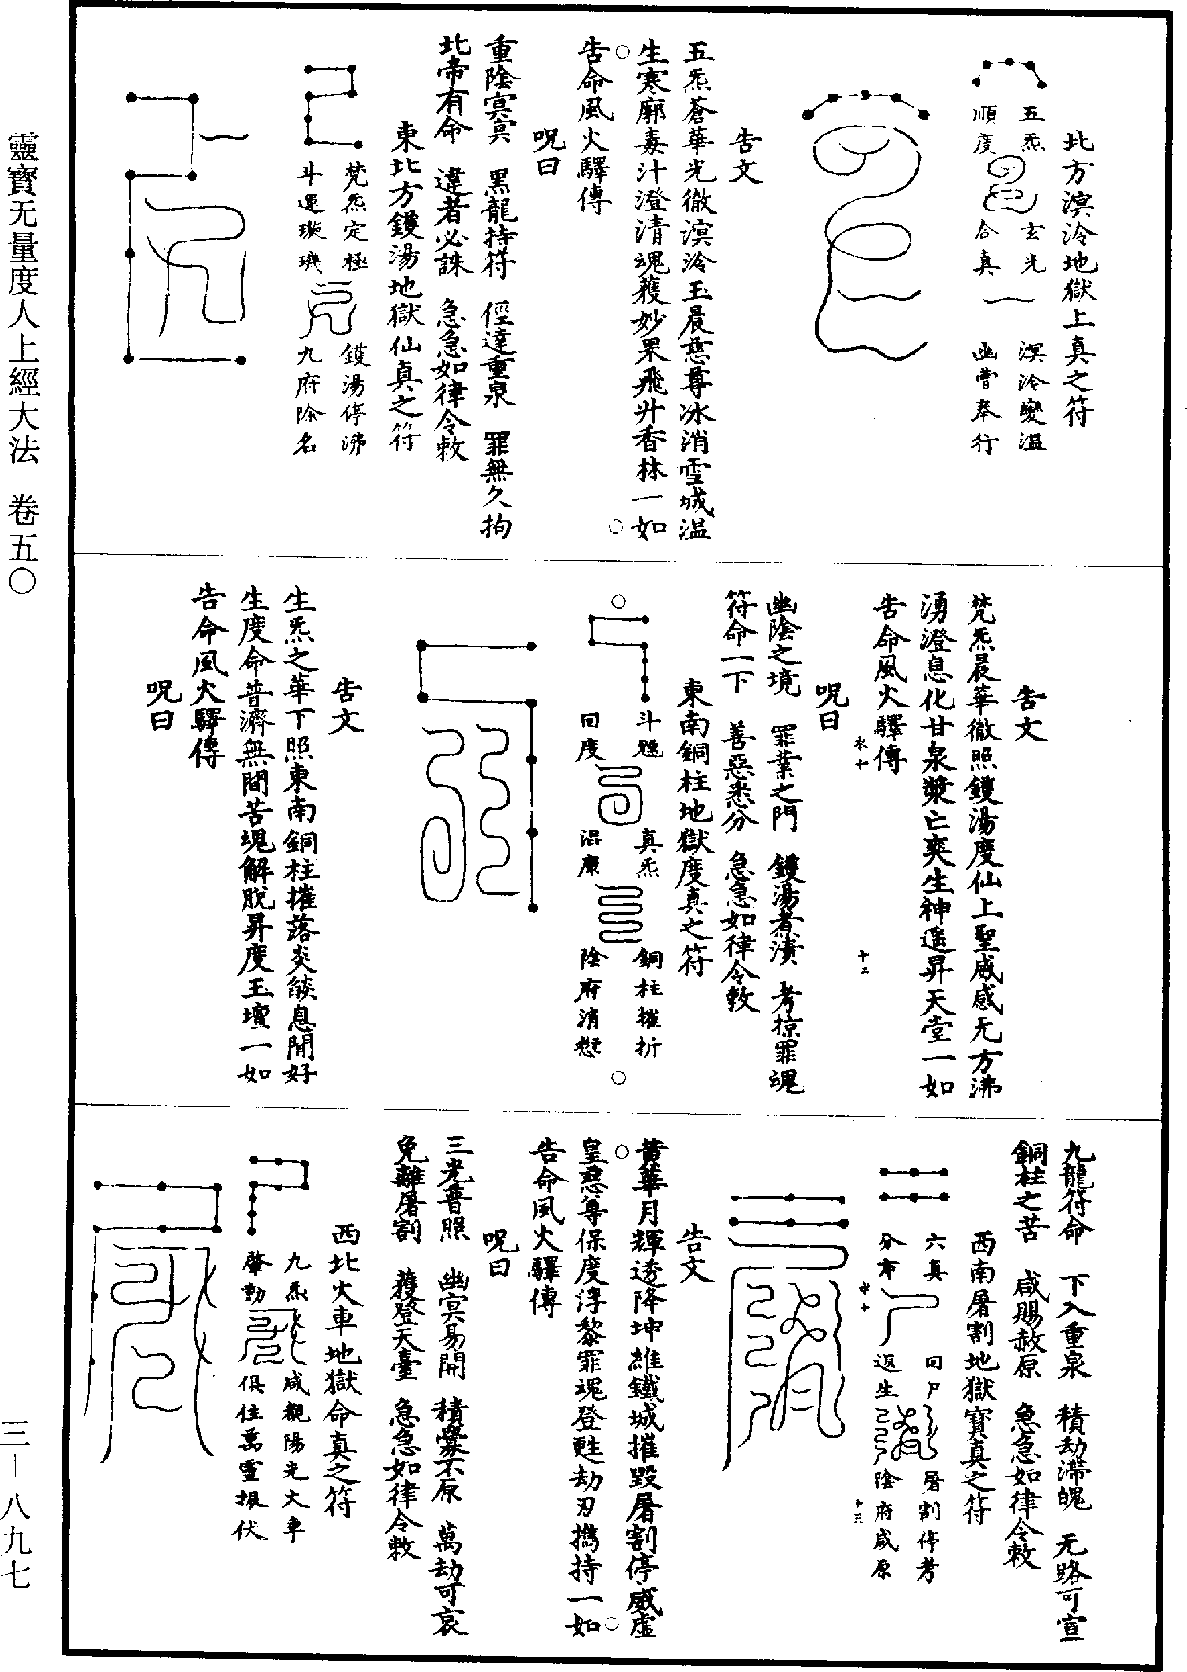 北方溟泠地獄上真之符
五炁玄光溟泠變溫
順度合真幽嘗奉行
告文
五炁蒼華光徹溟泠玉晨慈尊冰消雪城溫
生寒廓毒汁澄清魂獲妙果飛升香林一如
告命風火驛傳
呪曰
重陰冥冥　黑龍持符　徑達重泉　罪無久拘
北帝有命　違者必誅　急急如律令敕
東北方鑊湯地獄仙真之符
梵炁定極鑊湯停沸
斗運璇璣九府除名
告文
梵炁晨華徹照鑊湯度仙上聖咸感无方沸
湧澄息化甘泉漿亡爽生神遥昇天堂一如
告命風火驛傳
呪曰
幽陰之境　罪業之門　鑊湯煮漬　考掠罪魂
符命一下　善惡悉分　急急如律令敕
東南銅柱地獄度真之符
斗魁真炁銅柱摧折
回度混康陰府消愆
告文
生炁之華下照東南銅柱摧落炎燄息閒好
生度命普濟無間苦魂解脫昇度玉壇一如
告命風火驛傳
呪曰
九龍符命　下入重泉　積劫滯魄　无路可宣
銅柱之苦　咸賜赦原　急急如律令敕
西南屠割地獄寶真之符
六真回尸屠割停考
分布返生陰府咸原
告文
黃華月輝透降坤維鐵城摧毀屠割停威虛
皇慈尊保度浮黎罪魂登甦劫刃攜持一如
告命風火驛傳
呪曰
三光普照　幽冥易開　積釁不原　萬劫可哀
免離屠割　獲登天臺　急急如律令敕
西北火車地獄命真之符
九炁咸觀陽光火車
肇勅俱住萬靈振伏
靈寶无量度人上經大法　卷五〇
三—八九七